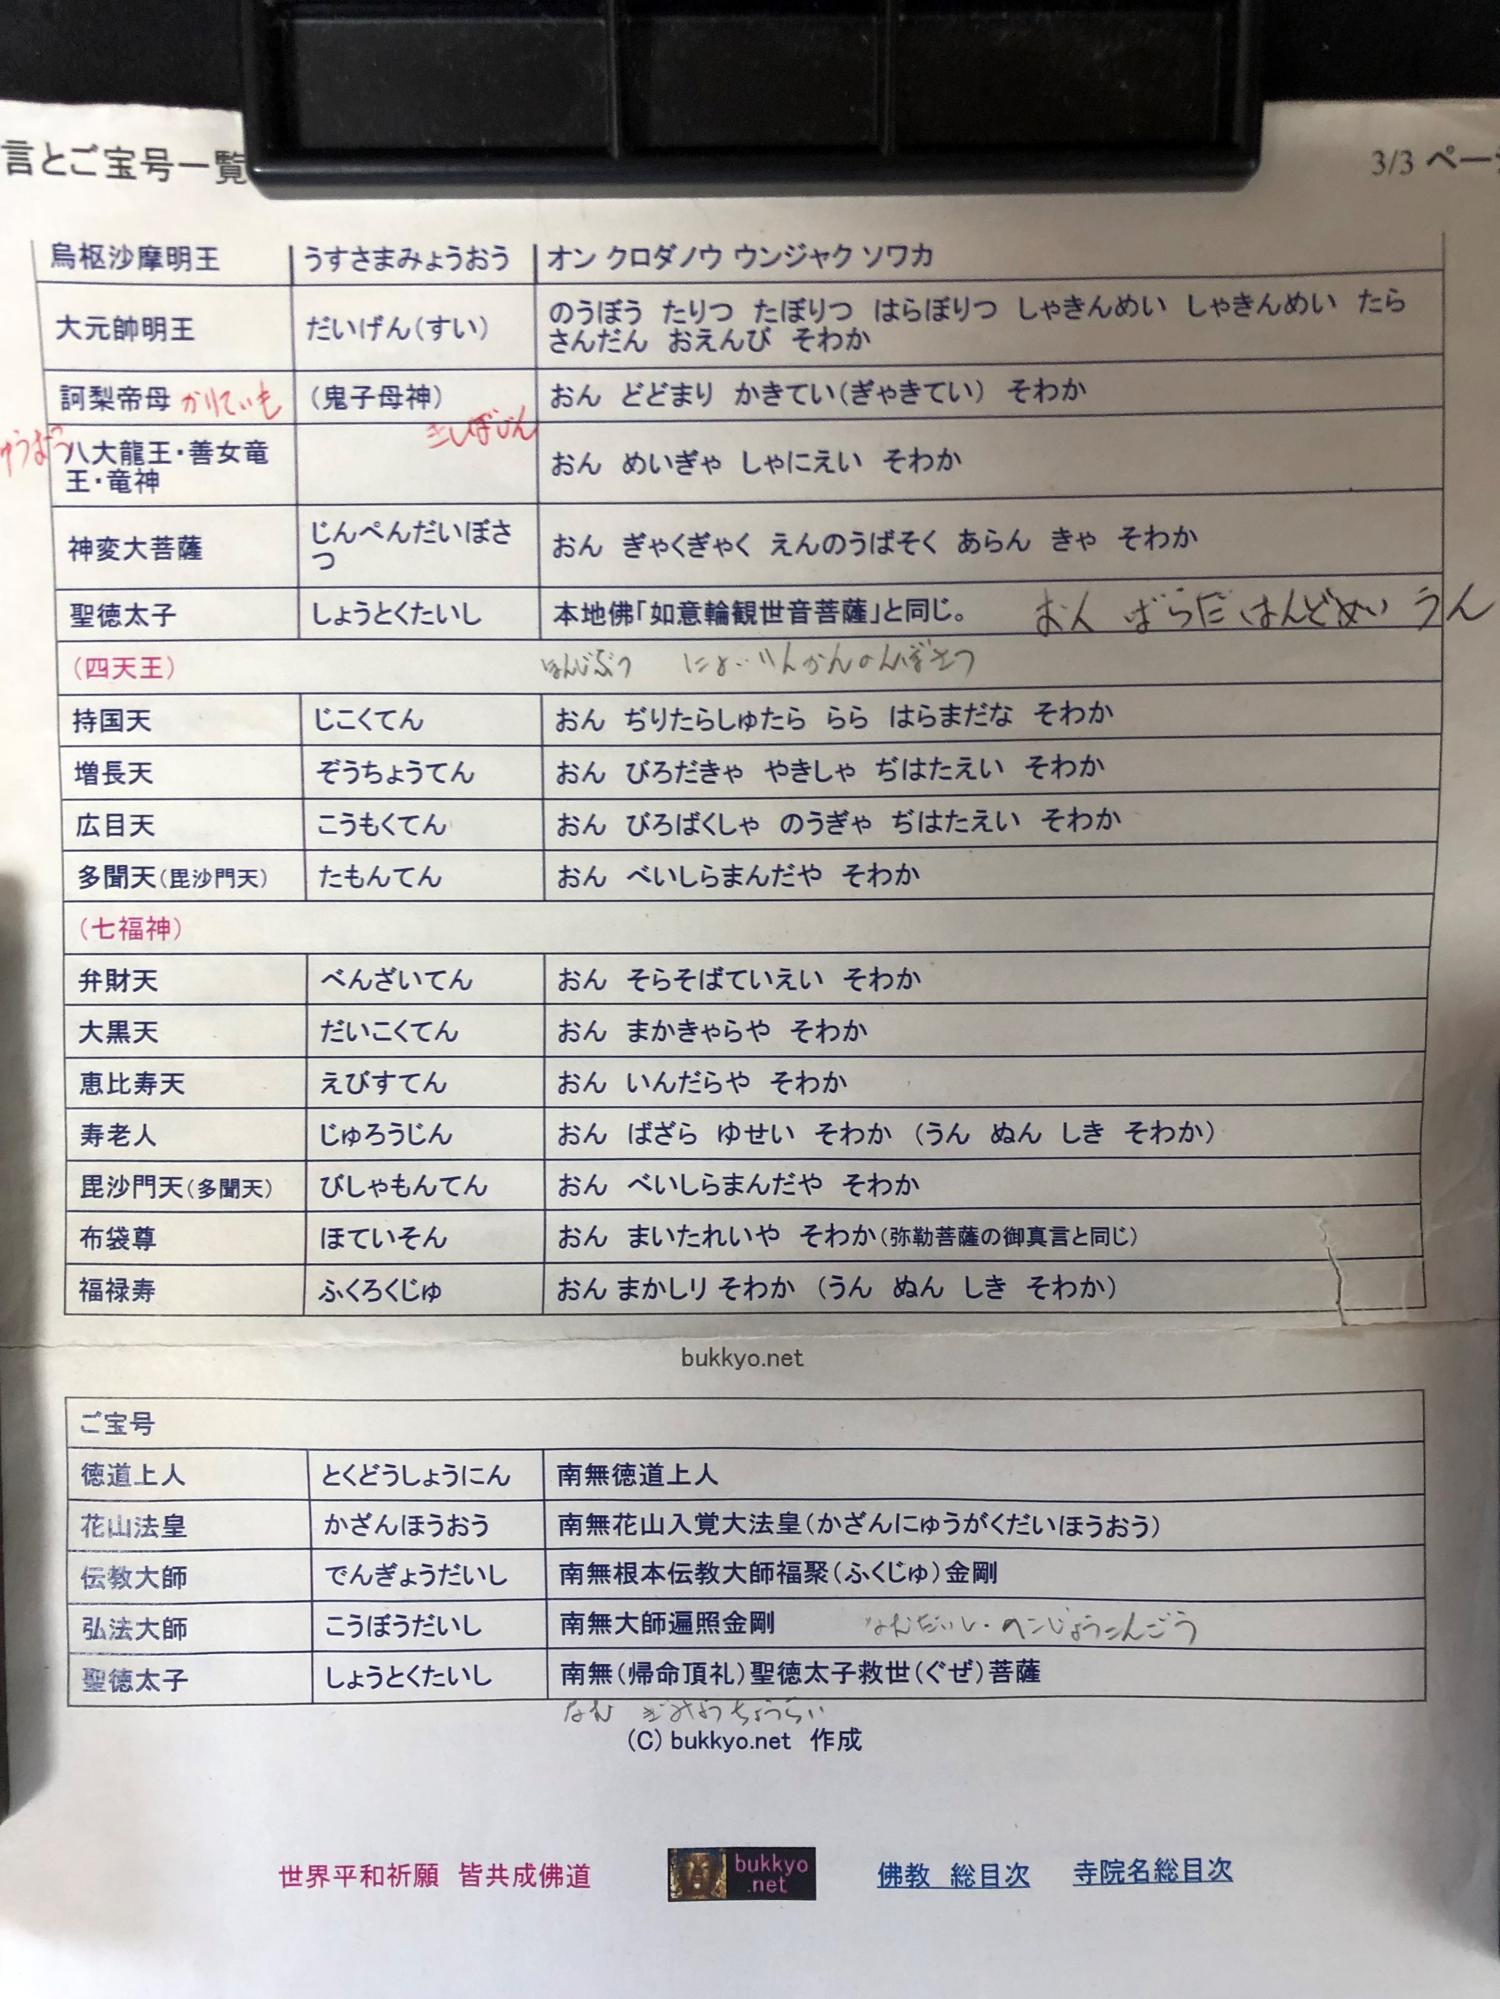 言とご宝号一覧
3/3 ペー
烏枢沙摩明王 うすさまみょうおう オン クロダノウ ウンジャク ソワカ
大元帥明王 だいげん(すい) のうぼう たりつ たぼりつ はらぼりつ しゃきんめい しゃきんめい たら
さんだん おえんび そわか
訶梨帝母 かりていも (鬼子母神) おん どどまり かきてい(ぎゃきてい) そわか
きしぼじん
八大龍王・善女竜
王・竜神
おん めいぎゃ しゃにえい そわか
神変大菩薩 じんぺんだいぼさ
つ
おん ぎゃくぎゃく えんのうばそく あらん きゃ そわか
聖徳太子 しょうとくたいし 本地佛「如意輪観世音菩薩」と同じ。 おん ばらだ はんどめい うん
(四天王) ほんじぶつ にょいりんかんのんぼさつ
持国天 じこくてん おん ぢりたらしゅたら らら はらまだな そわか
増長天 ぞうちょうてん おん びろだきゃ やきしゃ ぢはたえい そわか
広目天 こうもくてん おん びろばくしゃ のうぎゃ ぢはたえい そわか
多聞天(毘沙門天) たもんてん おん べいしらまんだや そわか
(七福神)
弁財天 べんざいてん おん そらそばていえい そわか
大黒天 だいこくてん おん まかきゃらや そわか
恵比寿天 えびすてん おん いんだらや そわか
寿老人 じゅろうじん おん ばざら ゆせい そわか (うん ぬん しき そわか)
毘沙門天(多聞天) びしゃもんてん おん べいしらまんだや そわか
布袋尊 ほていそん おん まいたれいや そわか(弥勒菩薩の御真言と同じ)
福禄寿 ふくろくじゅ おん まかしり そわか (うん ぬん しき そわか)
bukkyo.net
ご宝号
徳道上人 とくどうしょうにん 南無徳道上人
花山法皇 かざんほうおう 南無花山入覚大法皇(かざんにゅうがくだいほうおう)
伝教大師 でんぎょうだいし 南無根本伝教大師福聚(ふくじゅ)金剛
弘法大師 こうぼうだいし 南無大師遍照金剛 なむだいし・へんじょうこんごう
聖徳太子 しょうとくたいし 南無(帰命頂礼)聖徳太子救世(ぐぜ)菩薩
なむ きみょうちょうらい
(C) bukkyo.net 作成
世界平和祈願 皆共成佛道
bukkyo
.net
佛教 総目次 寺院名総目次